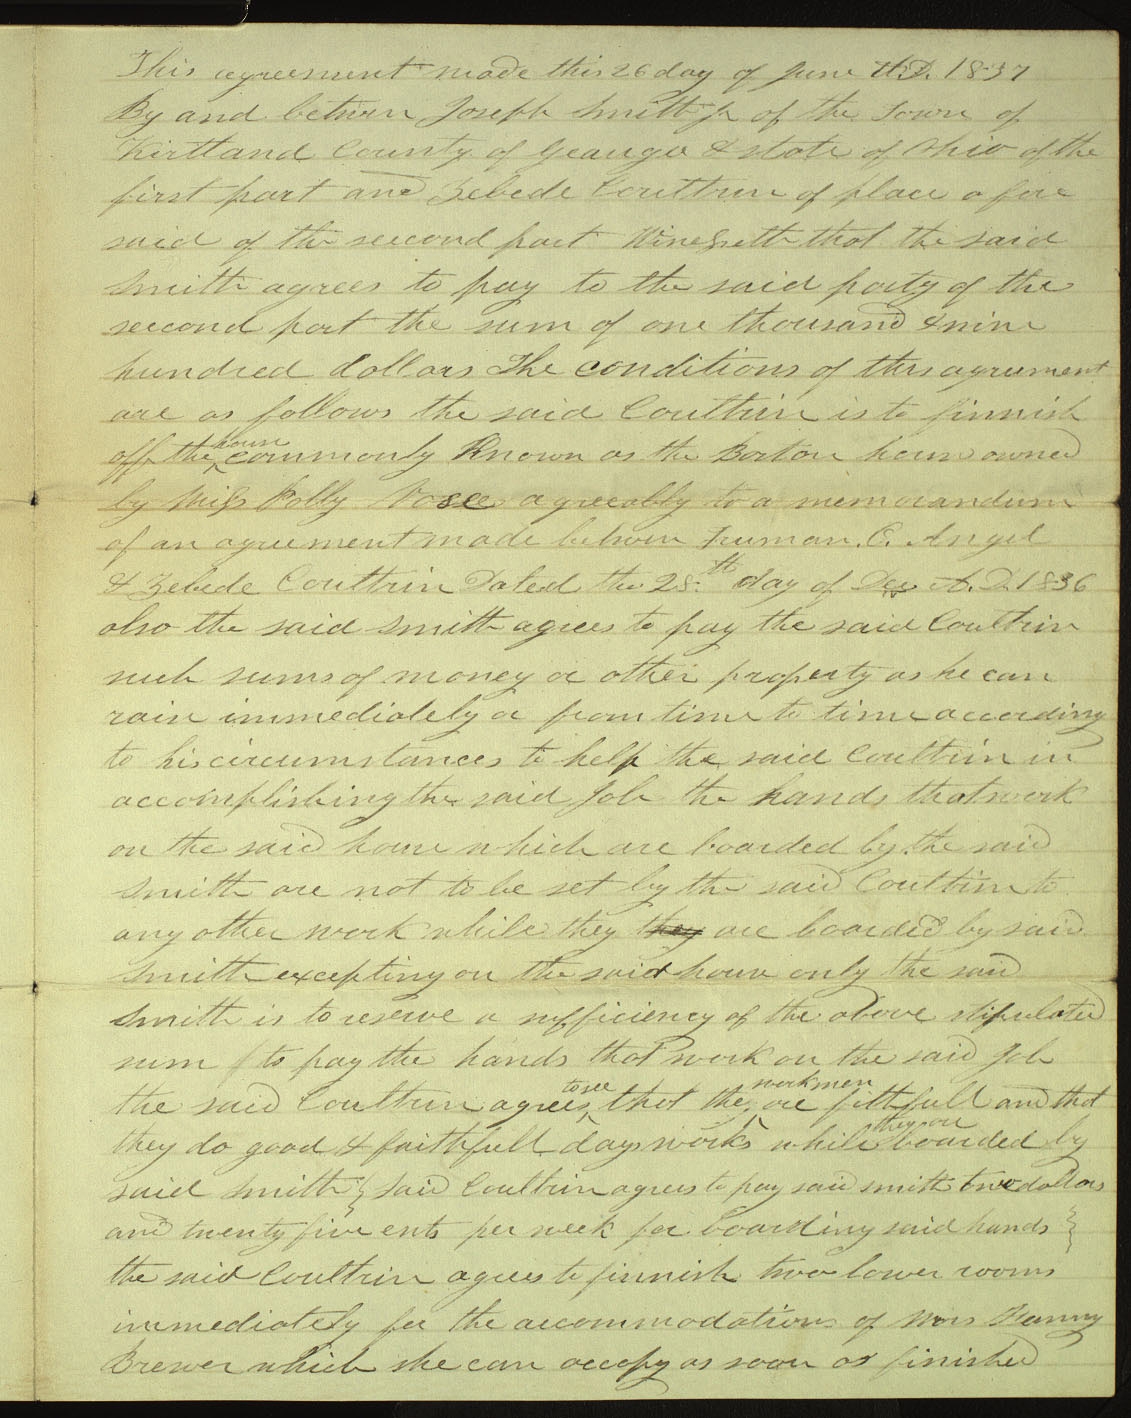 This agreement made this 26 day of June A.D. 1837
By and betwen Joseph Smith Jr of the Town of
Kirtland County of Geauga & state of Ohio of the
first part and Zebede Coultrin of place a fore
said of the second part Winesseth that the said
Smith agrees to pay to the said party of the
second part the sum of one thousand & nine
hundred dollars The conditions of this agreement
are as follows the said Coultrin is to finnish
off the ^house commonly Known as the Boston house owned
by Miss Polly Vose agreeably to a memorandum
of an agreement made between Truman. O. Angel
& Zebede Coultrin Dated the 28.th day of Dec A.D. 1836
also the said Smith agrees to pay the said Coultrin
such sums of money or other property as he can
rais immediately or from time to time according
to his circumstances to help the said Coultrin in
accomplishing the said Job the hands that work
on the said house which are boarded by the said
Smith are not to be set by the said Coultrin to
any other work while they they are boarded by said
Smith excepting on the said house only the said
Smith is to reserve a sufficiency of the above stipulated
sum to pay the hands that work on the said Job
the said Coultrin agrees ^to see that the ^workmen are fathfull and that
they do good & faithfull days works while they are boarded by
said Smith } said Coultrin agrees to pay said smith two dollars
and twenty five ents per week for boarding said hands }
the said Coultrin agrees to finnish two lower rooms
immediately for the accommodations of Mrs Fanny
Brewer which she can occupy as soon as finished